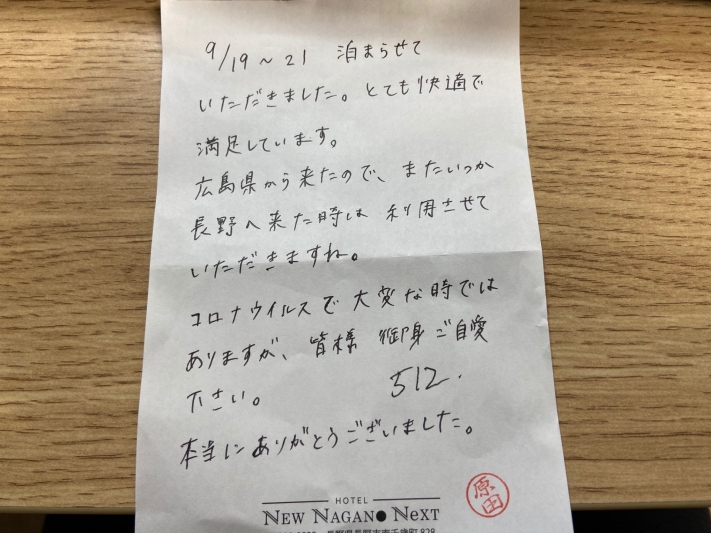 9/19～21 泊まらせて
いただきました。とても快適で
満足しています。
広島県から来たので、またいつか
長野へ来た時は利用させて
いただきますね。
コロナウイルスで大変な時では
ありますが、皆様 御身ご自愛
下さい。 512.
本当にありがとうございました。
HOTEL
NEW NAGANO NeXT
原田
長野県長野市南千歳町828